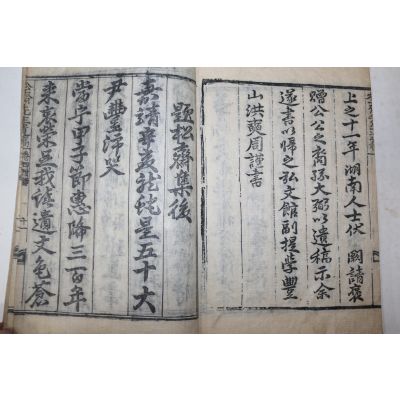 上之十一年湖南人士伏 闕請褒
贈公公之裔孫大弼以遺稿示余
遂書以歸之弘文館副提學豐
山洪奭周謹書
題松齋集後
嘉靖辛亥龍蛇星五十大
尹豐沛哭
當宇甲子節惠降三百年
來裒榮並我誠遺文色蒼